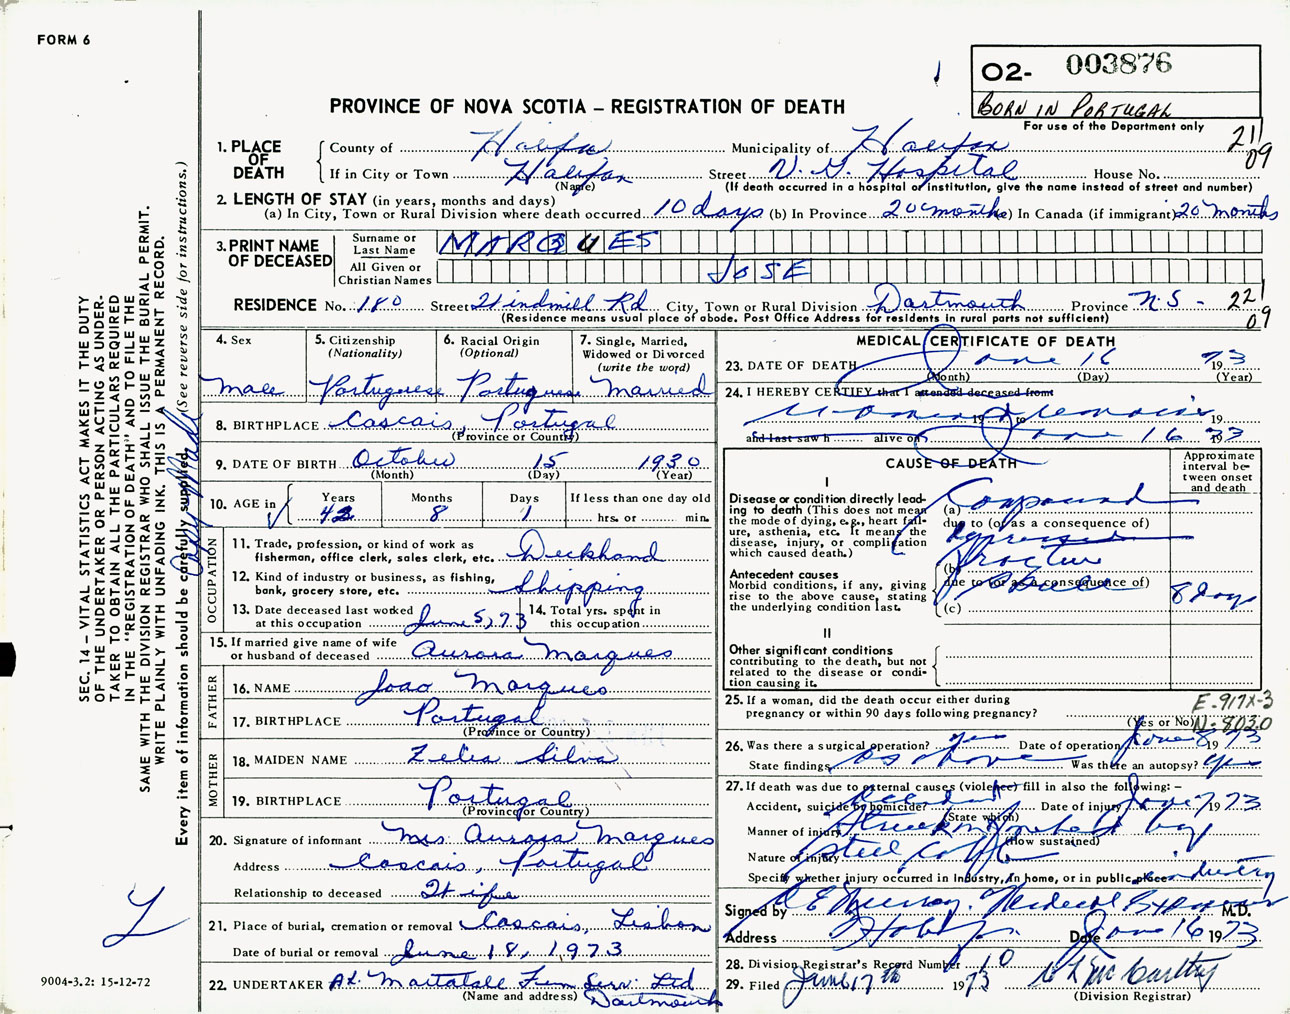 FORM 6
O2- 003876
BORN IN PORTUGAL
For use of the Department only
PROVINCE OF NOVA SCOTIA – REGISTRATION OF DEATH
21/09
1. PLACE OF DEATH
County of Halifax Municipality of Halifax
If in City or Town Halifax Street V. G. Hospital House No.
(Name) (If death occurred in a hospital or institution, give the name instead of street and number)
2. LENGTH OF STAY (in years, months and days)
(a) In City, Town or Rural Division where death occurred 10 days (b) In Province 20 months (c) In Canada (if immigrant) 20 months
3. PRINT NAME OF DECEASED
Surname or Last Name MARQUES
All Given or Christian Names JOSE
RESIDENCE No. 180 Street Windmill Rd City, Town or Rural Division Dartmouth Province N.S. -
(Residence means usual place of abode. Post Office Address for residents in rural parts not sufficient)
221
09
4. Sex
Male
5. Citizenship
(Nationality)
Portuguese
6. Racial Origin
(Optional)
Portuguese
7. Single, Married,
Widowed or Divorced
(write the word)
Married
8. BIRTHPLACE Cascais, Portugal
(Province or Country)
9. DATE OF BIRTH October 15 1930
(Month) (Day) (Year)
10. AGE in Years Months Days If less than one day old
42 8 1 hrs. or min.
OCCUPATION
11. Trade, profession, or kind of work as
fisherman, office clerk, sales clerk, etc. Deckhand
12. Kind of industry or business, as fishing,
bank, grocery store, etc. Shipping
13. Date deceased last worked
at this occupation June 5, 73
14. Total yrs. spent in
this occupation
15. If married give name of wife
or husband of deceased Aurora Marques
FATHER
16. NAME Joao Marques
17. BIRTHPLACE Portugal
(Province or Country)
MOTHER
18. MAIDEN NAME Zelia Silva
19. BIRTHPLACE Portugal
(Province or Country)
20. Signature of informant Mrs. Aurora Marques
Address Cascais, Portugal
Relationship to deceased Wife
21. Place of burial, cremation or removal Cascais, Lisbon
Date of burial or removal June 18, 1973
22. UNDERTAKER Mattatall Fun Serv. Ltd
(Name and address) Dartmouth
MEDICAL CERTIFICATE OF DEATH
23. DATE OF DEATH June 16 1973
(Month) (Day) (Year)
24. I HEREBY CERTIFY that I attended deceased from
19 to 19
and last saw h alive on June 16 1973
CAUSE OF DEATH
Approximate
interval be-
tween onset
and death
I
Disease or condition directly lead-
ing to death (This does not mean
the mode of dying, e.g., heart fail-
ure, asthenia, etc. It means the
disease, injury, or complication
which caused death.)
(a) Compound
due to (or as a consequence of)
depressed
(b) Fracture
due to (or as a consequence of)
Skull
(c)
8 days
Antecedent causes
Morbid conditions, if any, giving
rise to the above cause, stating
the underlying condition last.
II
Other significant conditions
contributing to the death, but not
related to the disease or condi-
tion causing it.
25. If a woman, did the death occur either during
pregnancy or within 90 days following pregnancy?
(Yes or No)
E-917X-3
N-8030
26. Was there a surgical operation? yes Date of operation June 8 1973
State findings as above Was there an autopsy? yes
27. If death was due to external causes (violence) fill in also the following: –
Accident, suicide or homicide? Accident Date of injury June 7 1973
(State which)
Manner of injury Struck on forehead by
(How sustained)
Nature of injury steel
Specify whether injury occurred in Industry, in home, or in public place industry
Signed by Medical Examiner M.D.
Address Halifax Date June 16 1973
28. Division Registrar's Record Number 10
29. Filed June 17th 1973
(Division Registrar)
SEC. 14 – VITAL STATISTICS ACT MAKES IT THE DUTY
OF THE UNDERTAKER OR PERSON ACTING AS UNDER-
TAKER TO OBTAIN ALL THE PARTICULARS REQUIRED
IN THE "REGISTRATION OF DEATH" AND TO FILE THE
SAME WITH THE DIVISION REGISTRAR WHO SHALL ISSUE THE BURIAL PERMIT.
WRITE PLAINLY WITH UNFADING INK. THIS IS A PERMANENT RECORD.
Every item of information should be carefully supplied. (See reverse side for instructions.)
9004-3.2: 15-12-72